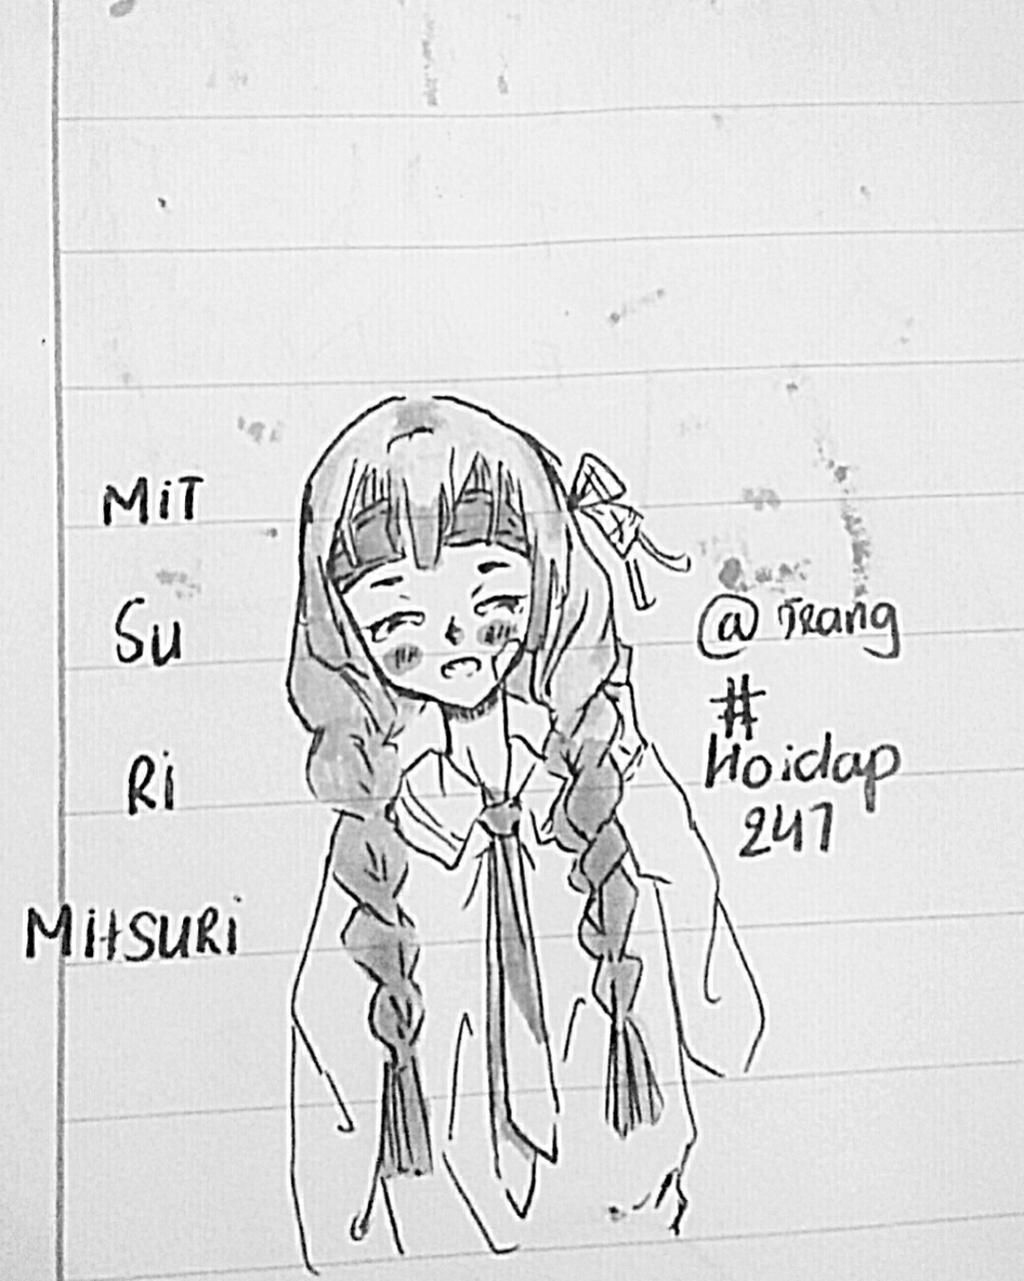 MiT
SU
Ri
MitSURi
@Trang
#
Hoidap
247